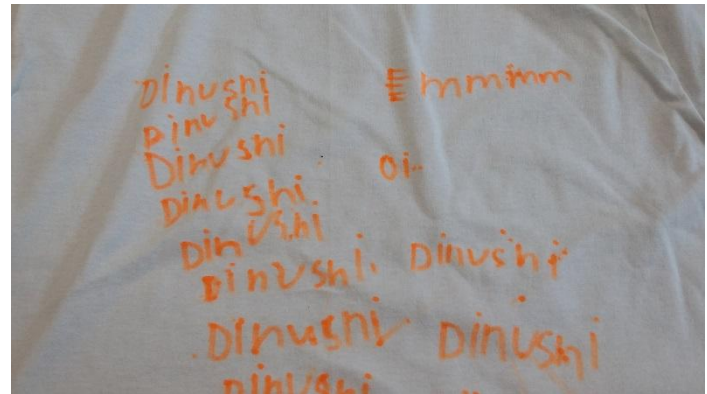 Dinushi Emmmmm
Dinushi
Dinushi oi..
Dinushi
Dinushi
Dinushi Dinushi
Dinushi Dinushi
Dinushi